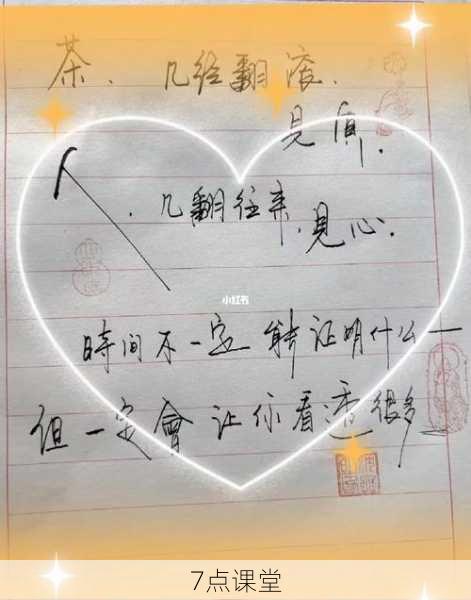 茶.几经翻滚.
见真.
人.几翻往来.见心.
小红书
時间不一定能证明什么
但一定會让你看透很多
7点课堂